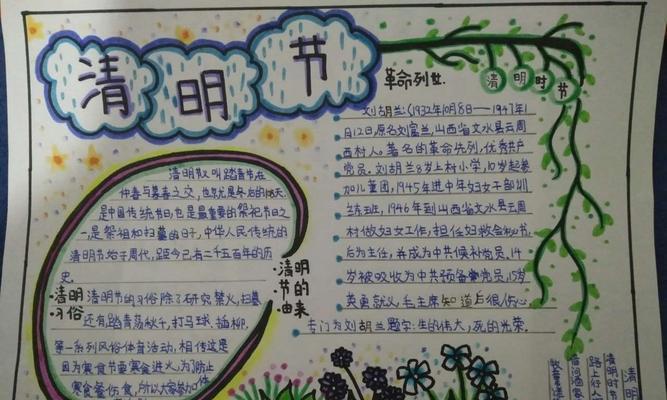 清明节
革命列士.
清明时节
刘胡兰:(1932年10月8日——1947年
1月12日,原名刘富兰,山西省文水县云周
西村人。著名的革命先列,优秀共产
党员。刘胡兰8岁上村小学,10岁起参
加儿童团,1945年进中年妇女干部训
练班,1946年到山西省文水县云周
村做妇女工作,担任妇救会秘书,
后为主任,并成为中共候补党员,14
岁被吸收为中共预备党员,15岁
英勇就义,毛主席知道后很伤心
专门为刘胡兰题字:生的伟大,死的光荣.
清明又叫踏青节,在
仲春与暮春之交,也就是冬至后的108天.
是中国传统节日,也是最重要的祭祀节日之
一,是祭祖和扫墓的日子,中华人民传统的
清明节始于周代,距今已有二千五百年的历
史.
清明节的由来
清明习俗
清明节的习俗除了研究禁火,扫墓
还有踏青荡秋千,打马球.插柳.
第一系列风俗体育活动,相传这是
因为寒食节要寒食进火,为了防止
寒食餐伤食,所以大家参加体
清明
清明时节
路上行人
借问酒家
牧童遥